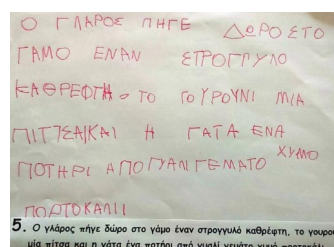 Ο ΓΛΑΡΟΣ ΠΗΓΕ ΔΩΡΟ ΣΤΟ
ΓΑΜΟ ΕΝΑΝ ΣΤΡΟΓΓΥΛΟ
ΚΑΘΡΕΦΤΗ. ΤΟ ΓΟΥΡΟΥΝΙ ΜΙΑ
ΠΙΤΤΣΑ ΚΑΙ Η ΓΑΤΑ ΕΝΑ
ΠΟΤΗΡΙ ΑΠΟ ΓΥΑΛΙ ΓΕΜΑΤΟ ΧΥΜΟ
ΠΟΡΤΟΚΑΛΙ
5. Ο γλάρος πήγε δώρο στο γάμο έναν στρογγυλό καθρέφτη, το γουρού
μία πίτσα και η γάτα ένα ποτήρι από γυαλί γεμάτο χυμό πορτοκάλι